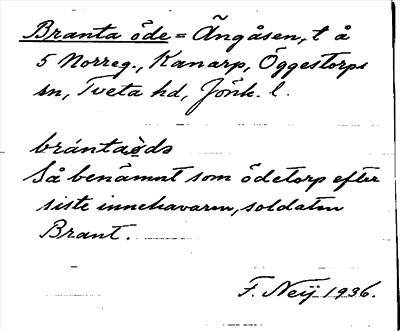 Branta öde = Ängåsen, t å
5 Norreg., Kanarp, Öggestorps
sn, Tveta hd, Jönk. l.
brántaö̀də
Så benämnt som ödetorp efter
siste innehavaren, soldaten
Brant.
F. Neij 1936.